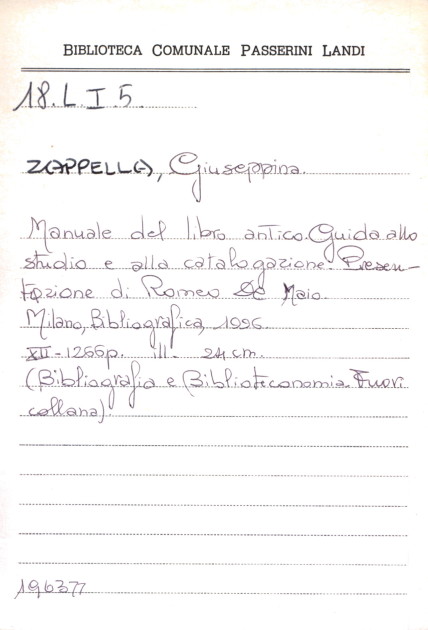 BIBLIOTECA COMUNALE PASSERINI LANDI
18. L. I. 5.
ZAPPELLA, Giuseppina.
Manuale del libro antico. Guida allo
studio e alla catalogazione. Presen-
tazione di Romeo De Maio.
Milano, Bibliografica, 1996.
XII - 1266p. ill. 24 cm.
(Bibliografia e Biblioteconomia. Fuori
collana).
196377